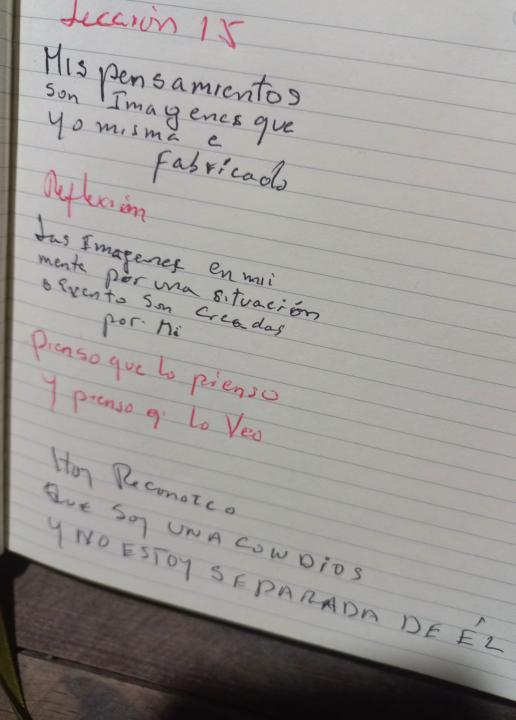 Lección 15
Mis pensamientos
son Imagenes que
yo misma e
fabricado
Reflexión
Las Imagenes en mii
mente por una situación
o Evento son creadas
por Mi
Pienso que lo pienso
y pienso q' lo Veo
Hoy Reconozco
Que soy UNA CON DIOS
Y NO ESTOY SEPARADA DE ÉL